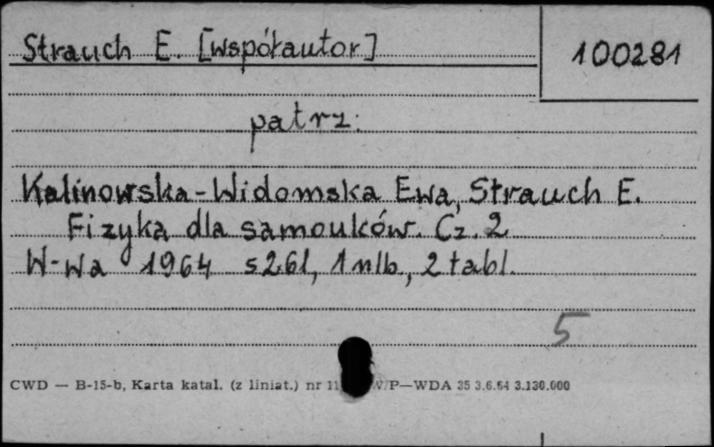 Strauch E. [współautor]
100281
patrz:
Kalinowska-Widomska Ewa, Strauch E.
Fizyka dla samouków. Cz. 2
W-wa 1964 s 261, 1 nlb, 2 tabl.
5
CWD — B-15-b, Karta katal. (z liniat.) nr P—WDA 35 3.6.64 3.130.000